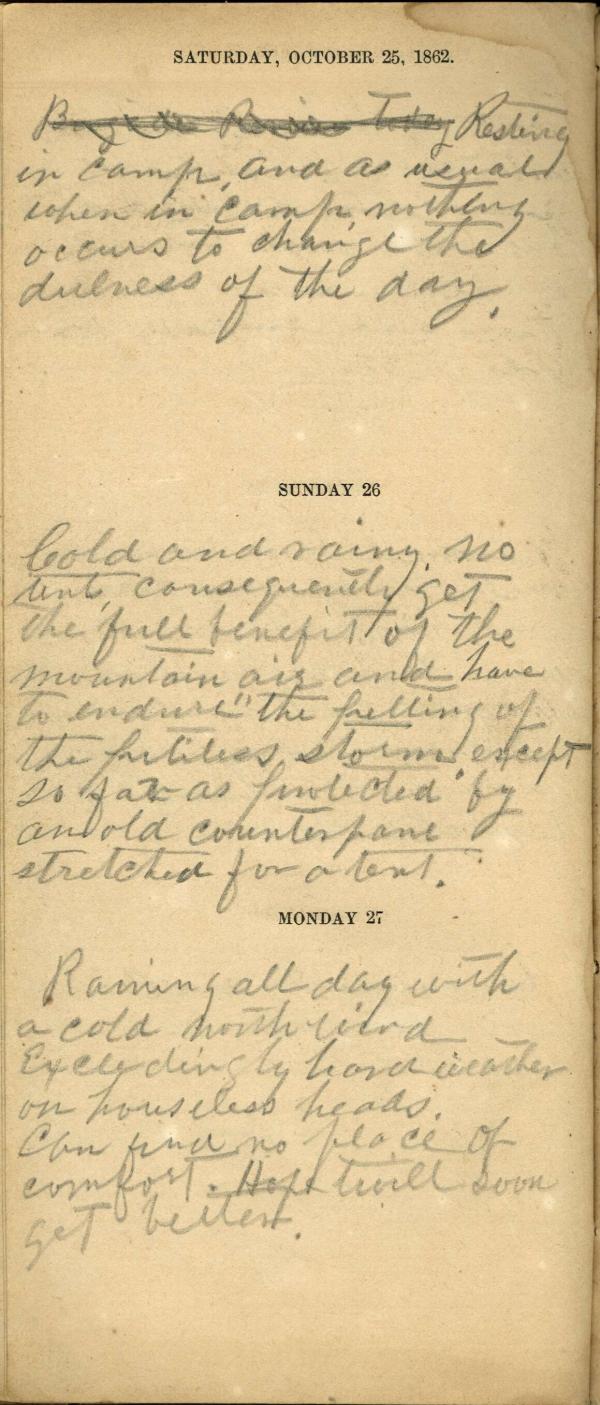 SATURDAY, OCTOBER 25, 1862.
Brigade Review Today Resting
in camp, and as usual
when in camp, nothing
occurs to change the
dulness of the day.
SUNDAY 26
Cold and rainy, no
tent, consequently get
the full benefit of the
mountain air and have
to endure "the pelting of
the pitiless storm" except
so far as protected by
an old counterpane
stretched for a tent.
MONDAY 27
Raining all day with
a cold north wind
Exceedingly hard weather
on houseless heads.
Can find no place of
comfort. Hope twill soon
get better.